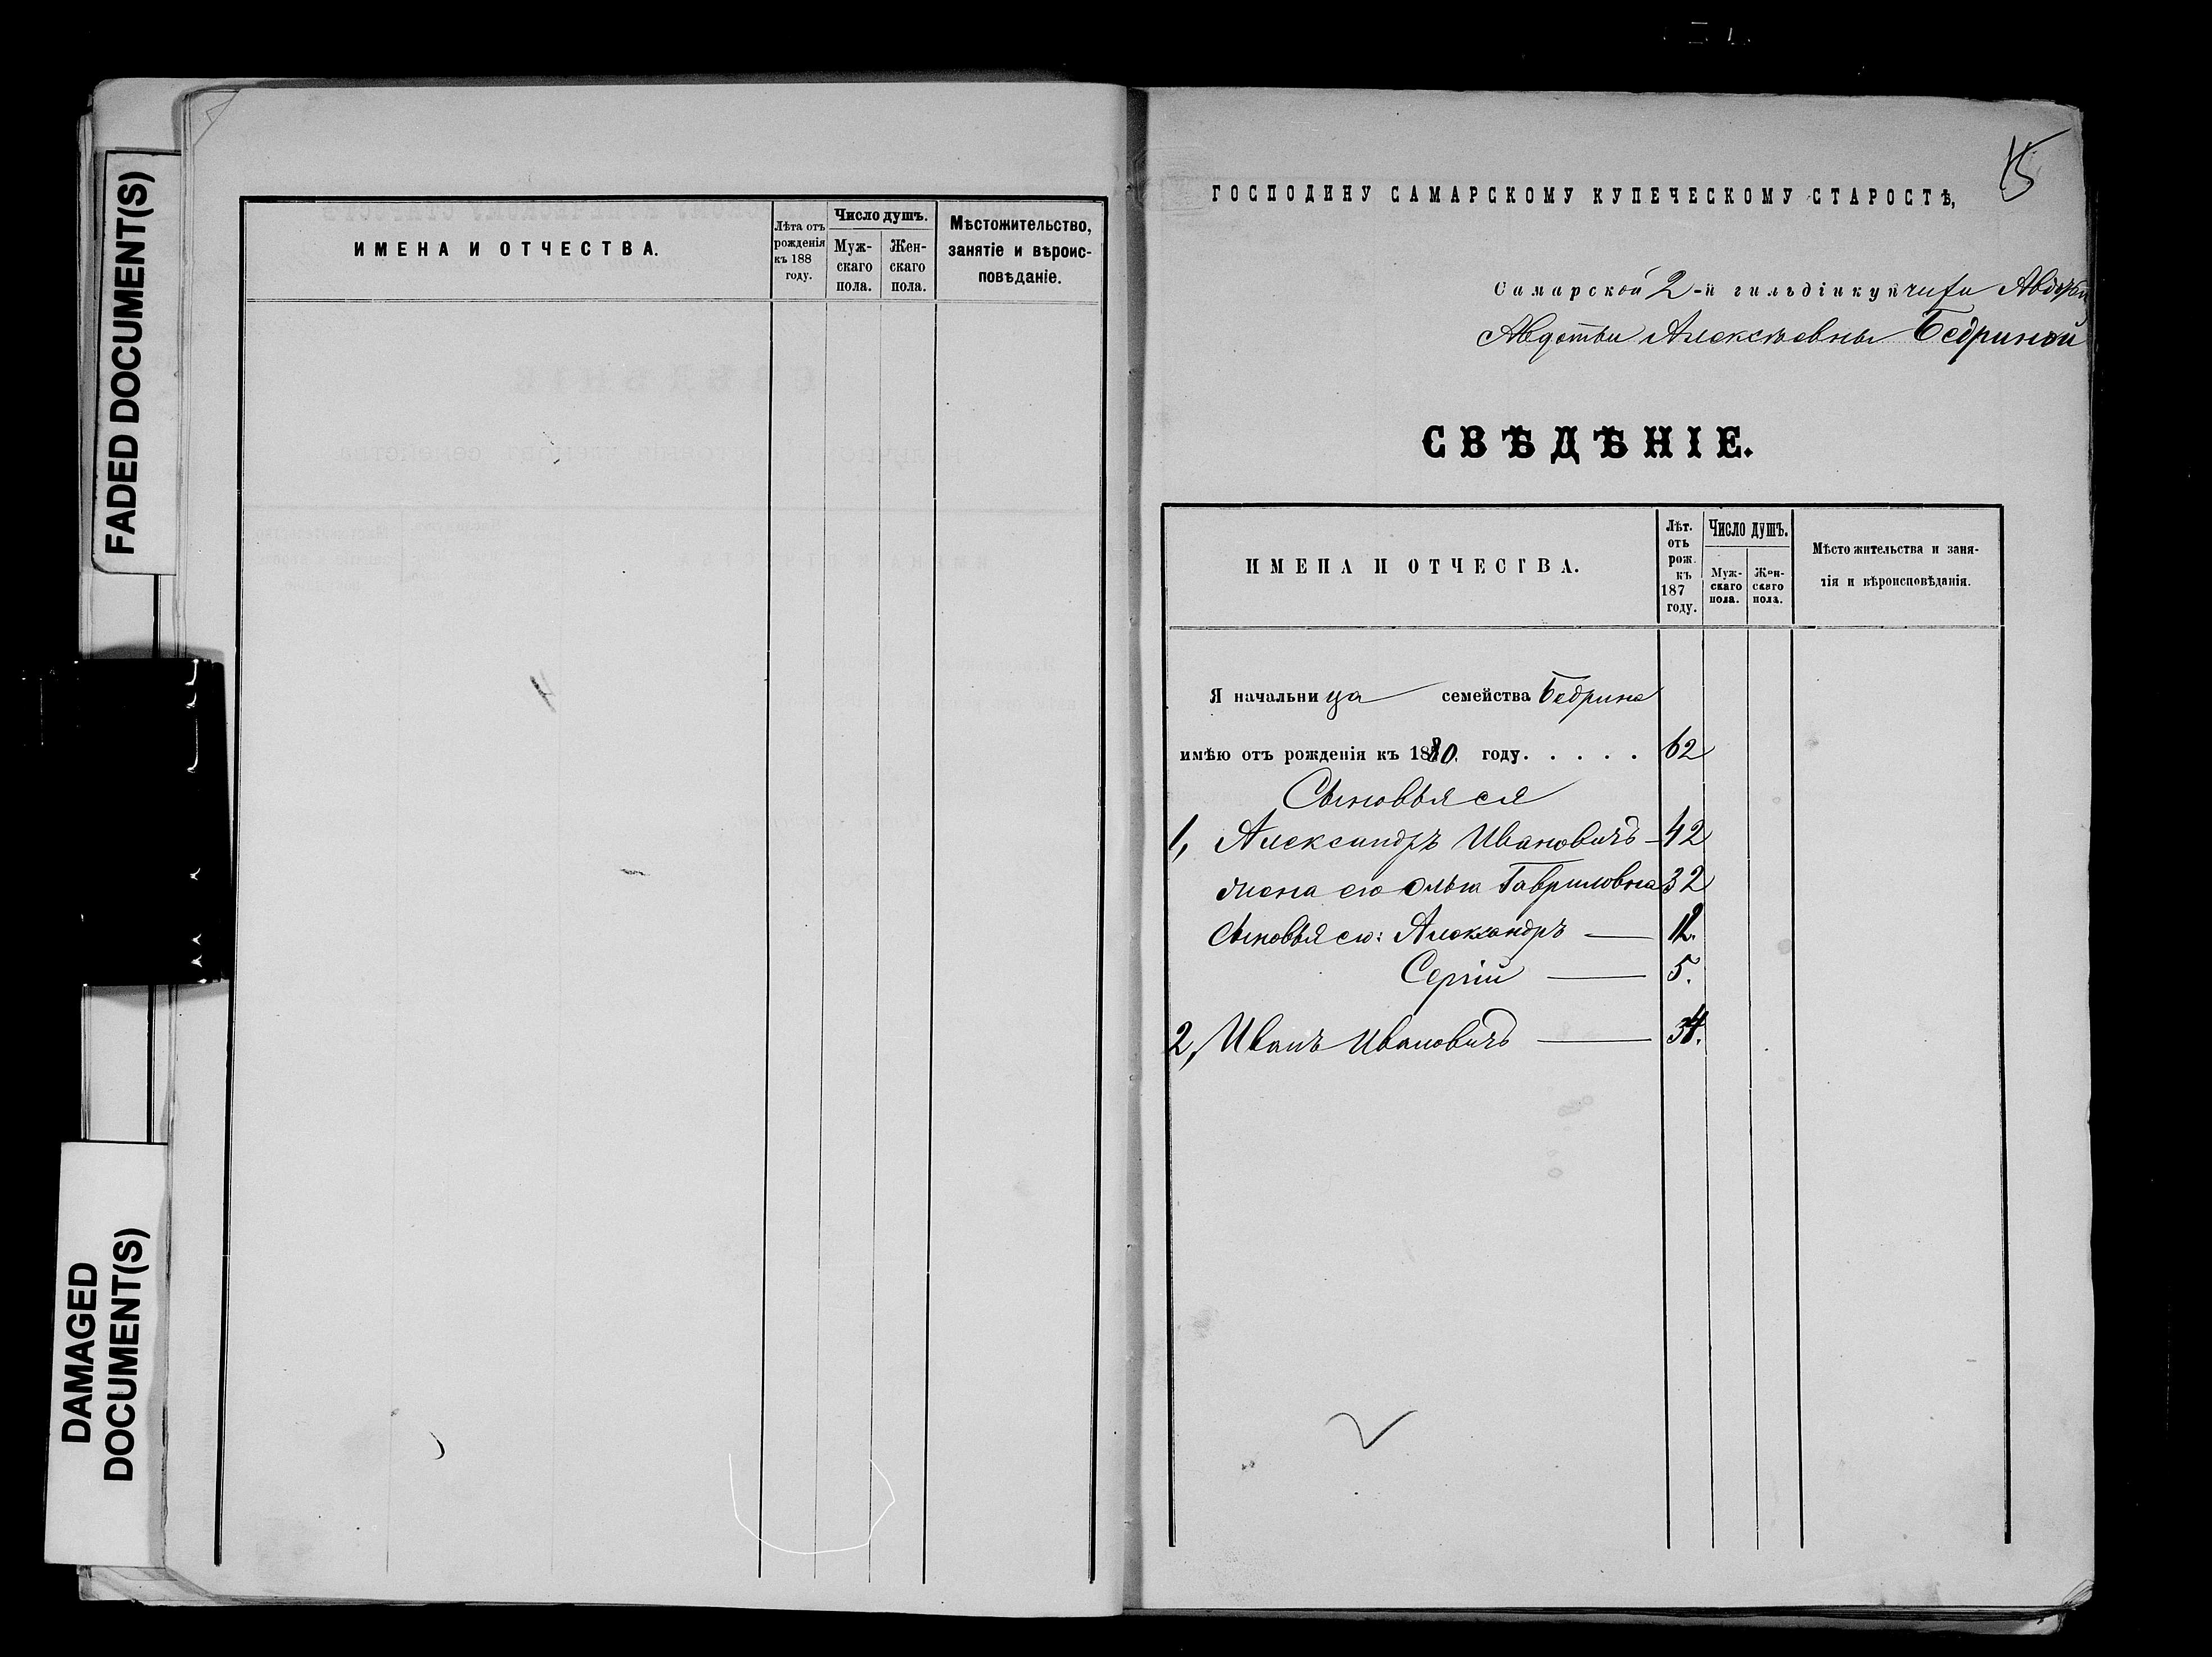 FADED DOCUMENT(S)
DAMAGED
DOCUMENT(S)
ИМЕНА И ОТЧЕСТВА.
Лѣта отъ
рожденія
къ 188
году.
Число душъ.
Муж-
скаго
пола.
Жен-
скаго
пола.
Мѣстожительство,
занятіе и вѣроис-
повѣданіе.
15
ГОСПОДИНУ САМАРСКОМУ КУПЕЧЕСКОМУ СТАРОСТѢ,
Самарской 2-й гильдіи купчихи
Авдотьи Алексѣевны Бедриной
СВѢДѢНІЕ.
ИМЕНА И ОТЧЕСТВА.
Лѣт.
отъ
рож.
къ
187
году.
Число душъ.
Муж-
скаго
пола.
Жен-
скаго
пола.
Мѣсто жительства и заня-
тія и вѣроисповѣданія.
Я начальница семейства Бедрина
имѣю отъ рожденія къ 1880. году. . . . . 62
Сыновья ея
1, Александръ Ивановичъ — 42
жена его Ольга Гавриловна 32
Сыновья его: Александръ — 12.
Сергій — 5.
2, Иванъ Ивановичъ — 34.